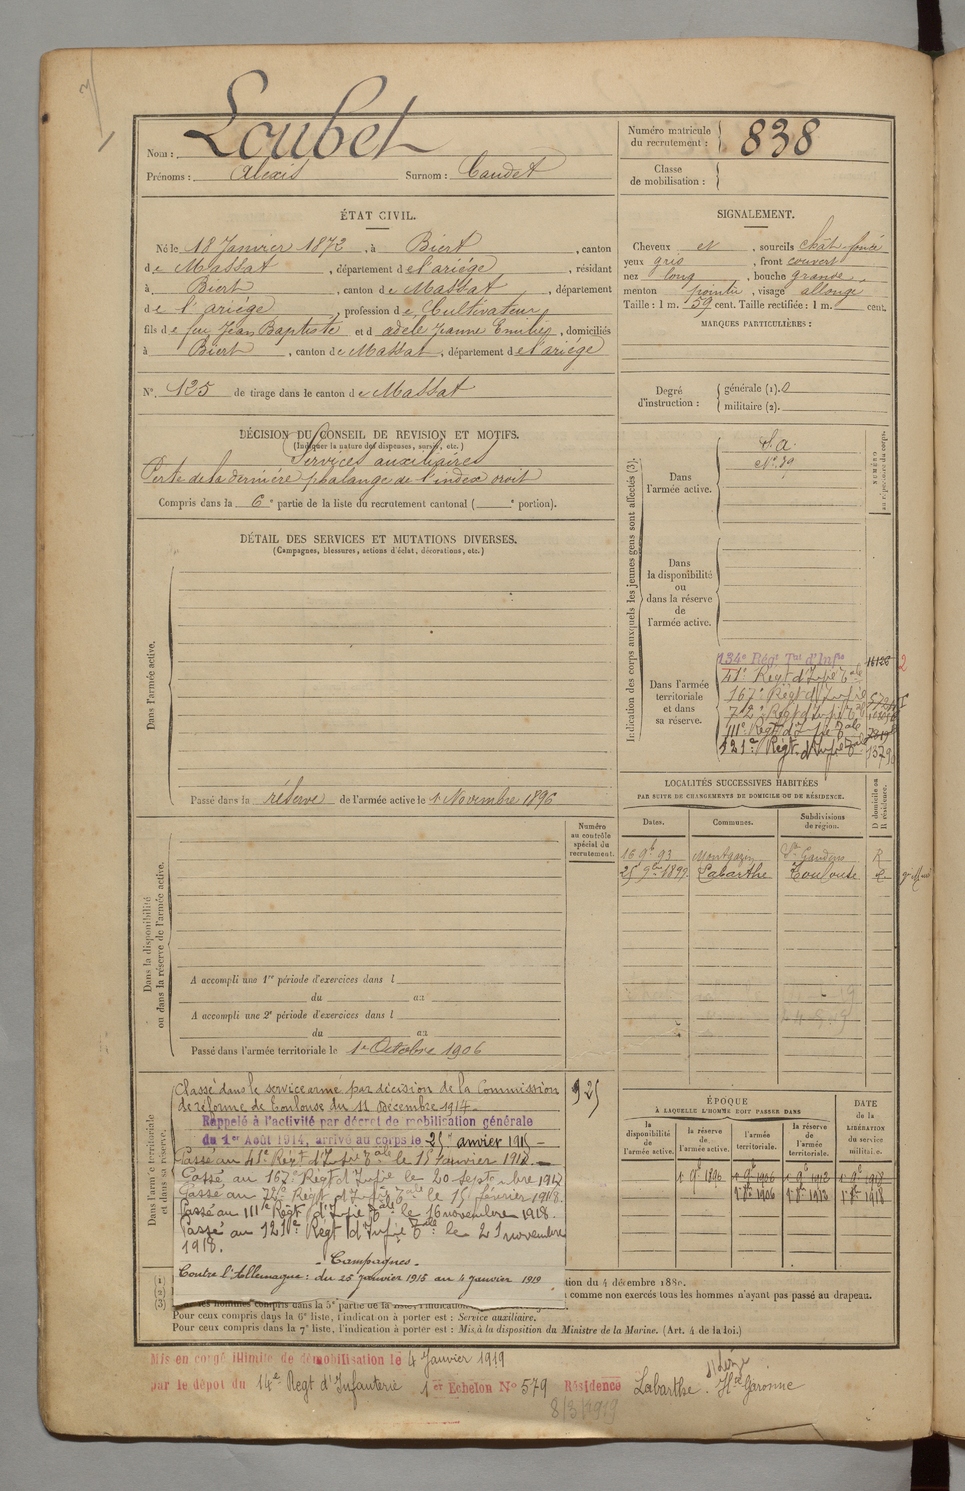 Nom : Loubet
Prénoms : Alexis Surnom : Caudet
Numéro matricule du recrutement : 838
Classe de mobilisation :
ÉTAT CIVIL.
Né le 18 Janvier 1872, à Biert, canton
de Massat, département de l'ariége, résidant
à Biert, canton de Massat, département
de l'ariége, profession de Cultivateur
fils de feu Jean Baptiste et d adèle Jeanne Emilie, domiciliés
à Biert, canton de Massat, département de l'ariége
N° 125 de tirage dans le canton de Massat
SIGNALEMENT.
Cheveux et, sourcils chât-foncé
yeux gris, front couvert
nez long, bouche grande
menton pointu, visage allongé
Taille : 1 m. 59 cent. Taille rectifiée : 1 m. cent.
MARQUES PARTICULIÈRES :
Degré d'instruction : générale (1). 0
militaire (2).
DÉCISION DU CONSEIL DE REVISION ET MOTIFS.
(Indiquer la nature des dispenses, sursis, etc.)
Services auxiliaires
Perte de la dernière phalange de l'index droit
Compris dans la 6e partie de la liste du recrutement cantonal ( e portion).
DÉTAIL DES SERVICES ET MUTATIONS DIVERSES.
(Campagnes, blessures, actions d'éclat, décorations, etc.)
Dans l'armée active.
Passé dans la réserve de l'armée active le 1 Novembre 1896
Indication des corps auxquels les jeunes gens sont affectés (3).
NUMÉRO
Dans l'armée active.
S. a.
N° 39
Dans la disponibilité ou dans la réserve de l'armée active.
Dans l'armée territoriale et dans sa réserve.
134e Régt Tal d'Infie 16126 2
41e Régt d'Infie Tale
167e Régt d'Infie
72e Régt d'Infie Tal
111e Régt d'Infie Tale
121e Régt d'Infie Tale
LOCALITÉS SUCCESSIVES HABITÉES
PAR SUITE DE CHANGEMENTS DE DOMICILE OU DE RÉSIDENCE.
D domicile ou R résidence.
Dates. Communes. Subdivisions de région.
16 9b 93 Montgazin St Gaudens R
25 9bre 1899 Labarthe Toulouse R
Numéro au contrôle spécial du recrutement.
Dans la disponibilité ou dans la réserve de l'armée active.
A accompli une 1re période d'exercices dans l
du au
A accompli une 2e période d'exercices dans l
du au
Passé dans l'armée territoriale le 1er Octobre 1906
Dans l'armée territoriale et dans sa réserve.
Classé dans le service armé par décision de la Commission
de réforme de Toulouse du 11 Décembre 1914.
925
Rappelé à l'activité par décret de mobilisation générale
du 1er Août 1914, arrivé au corps le 25 Janvier 1915
Passé au 41e Régt d'Infie Tale le 15 Janvier 1918.
Passé au 167e Régt d'Infie le 20 septembre 1917
Passé au 72e Régt d'Infie Tale le 15 février 1918.
Passé au 111e Régt d'Infie Tale le 16 novembre 1918.
Passé au 121e Régt d'Infie Tale le 21 novembre
1918.
Campagnes
Contre l'Allemagne : du 25 janvier 1915 au 4 janvier 1919
ÉPOQUE
À LAQUELLE L'HOMME DOIT PASSER DANS
DATE de la LIBÉRATION du service militaire.
la disponibilité de l'armée active. la réserve de l'armée active. l'armée territoriale. la réserve de l'armée territoriale.
1 9b 1896 1 9b 1906 1 9b 1912 1 9b 1918
1 8b 1906 1 8b 1912 1 8b 1918
(1)
(2)
(3)
tion du 4 décembre 1880.
comme non exercés tous les hommes n'ayant pas passé au drapeau.
les hommes compris dans la 5e partie de la liste, l'indication
Pour ceux compris dans la 6e liste, l'indication à porter est : Service auxiliaire.
Pour ceux compris dans la 7e liste, l'indication à porter est : Mis à la disposition du Ministre de la Marine. (Art. 4 de la loi.)
Mis en congé illimité de démobilisation le 4 Janvier 1919
par le dépôt du 14e Régt d'Infanterie 1er Echelon N° 579 Résidence Labarthe s/ Lèze Hte Garonne
8/3/1919